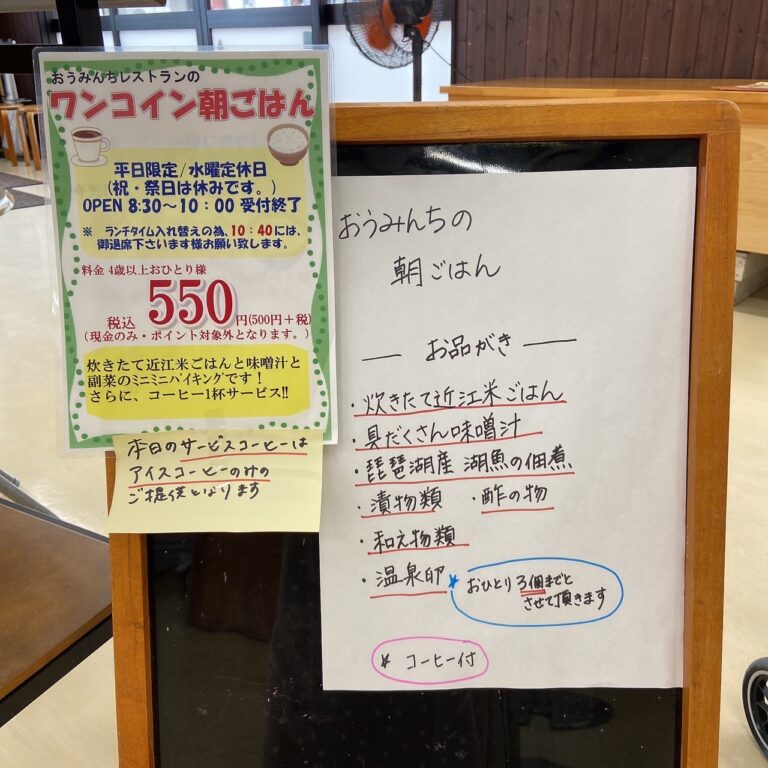 おうみんちレストランの
ワンコイン朝ごはん
平日限定/水曜定休日
(祝・祭日は休みです。)
OPEN 8:30～10：00 受付終了
※ ランチタイム入れ替えの為、10：40には、
御退席下さいます様お願い致します。
料金 4歳以上おひとり様
税込 550円(500円＋税)
(現金のみ・ポイント対象外となります。)
炊きたて近江米ごはんと味噌汁と
副菜のミニミニバイキングです！
さらに、コーヒー1杯サービス!!
本日のサービスコーヒーは
アイスコーヒーのみの
ご提供となります
おうみんちの
朝ごはん
― お品がき ―
・炊きたて近江米ごはん
・具だくさん味噌汁
・琵琶湖産 湖魚の佃煮
・漬物類 ・酢の物
・和え物類
・温泉卵 * おひとり3個までと
させて頂きます
* コーヒー付